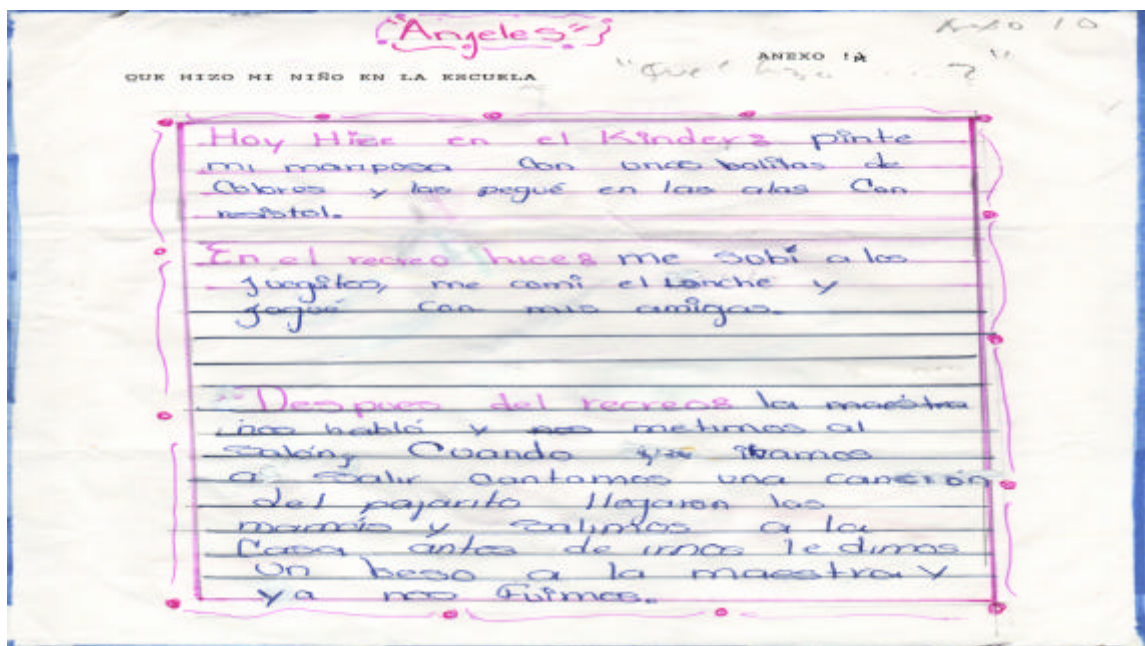 "Angeles"
Anexo 10
ANEXO 1A
QUE HIZO MI NIÑO EN LA ESCUELA
"Que hizo ...?"
Hoy Hize en el Kinder: pinte
mi mariposa Con unas bolitas de
Colores y las pegué en las alas Con
resistol.
En el recreo hice: me sobí a los
jueguitos, me comí el Lonche y
jogué con mis amigas.
"Despues del recreo: la maestra
nos habló y nos metimos al
salón, Cuando ibamos
a salir cantamos una canción
del pajarito llegaron las
mamás y salimos a la
Casa, antes de irnos le dimos
un beso a la maestra y
ya nos fuimos.